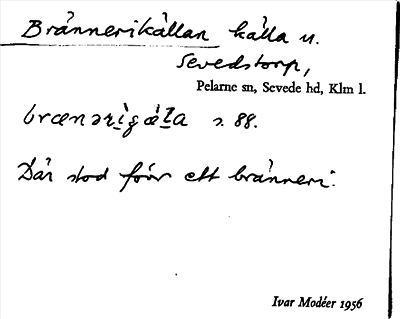 Brännerikällan källa u.
Sevedstorp,
Pelarne sn, Sevede hd, Klm l.
s. 88.
Där stod förr ett bränneri.
Ivar Modéer 1956